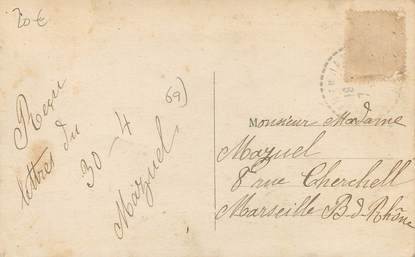 20€
Reçu
lettres du
30-4
Mazuel
69)
Monsieur Madame
Mazuel
8 rue Cherchell
Marseille B-d-Rhône